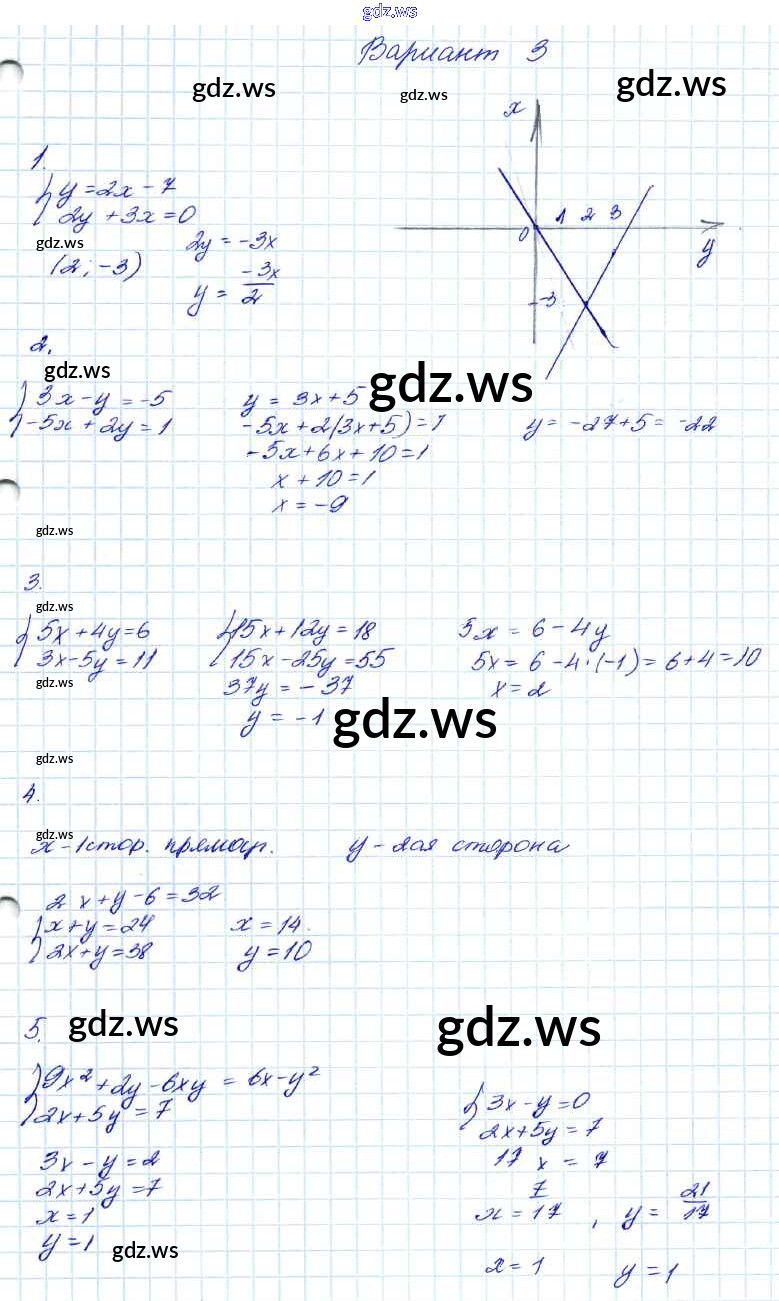 gdz.ws
Вариант 3
gdz.ws gdz.ws gdz.ws
x
1.
y = 2x - 7
2y + 3x = 0
0 1 2 3
y
-3
gdz.ws
2y = -3x
(2; -3)
y = -3x/2
2.
gdz.ws gdz.ws
3x - y = -5
-5x + 2y = 1
y = 3x + 5
-5x + 2(3x + 5) = 1
-5x + 6x + 10 = 1
x + 10 = 1
x = -9
y = -27 + 5 = -22
gdz.ws
3.
gdz.ws
5x + 4y = 6
3x - 5y = 11
15x + 12y = 18
15x - 25y = 55
37y = -37
y = -1
5x = 6 - 4y
5x = 6 - 4·(-1) = 6 + 4 = 10
x = 2
gdz.ws
gdz.ws
gdz.ws
4.
gdz.ws
x - 1 стор. прямоуг. y - 2ая сторона
2x + y - 6 = 32
x + y = 24
2x + y = 38
x = 14
y = 10
5.
gdz.ws gdz.ws
9x² + 2y - 6xy = 6x - y²
2x + 5y = 7
3x - y = 2
2x + 5y = 7
x = 1
y = 1
gdz.ws
3x - y = 0
2x + 5y = 7
17x = 7
x = 7/17, y = 21/17
x = 1 y = 1